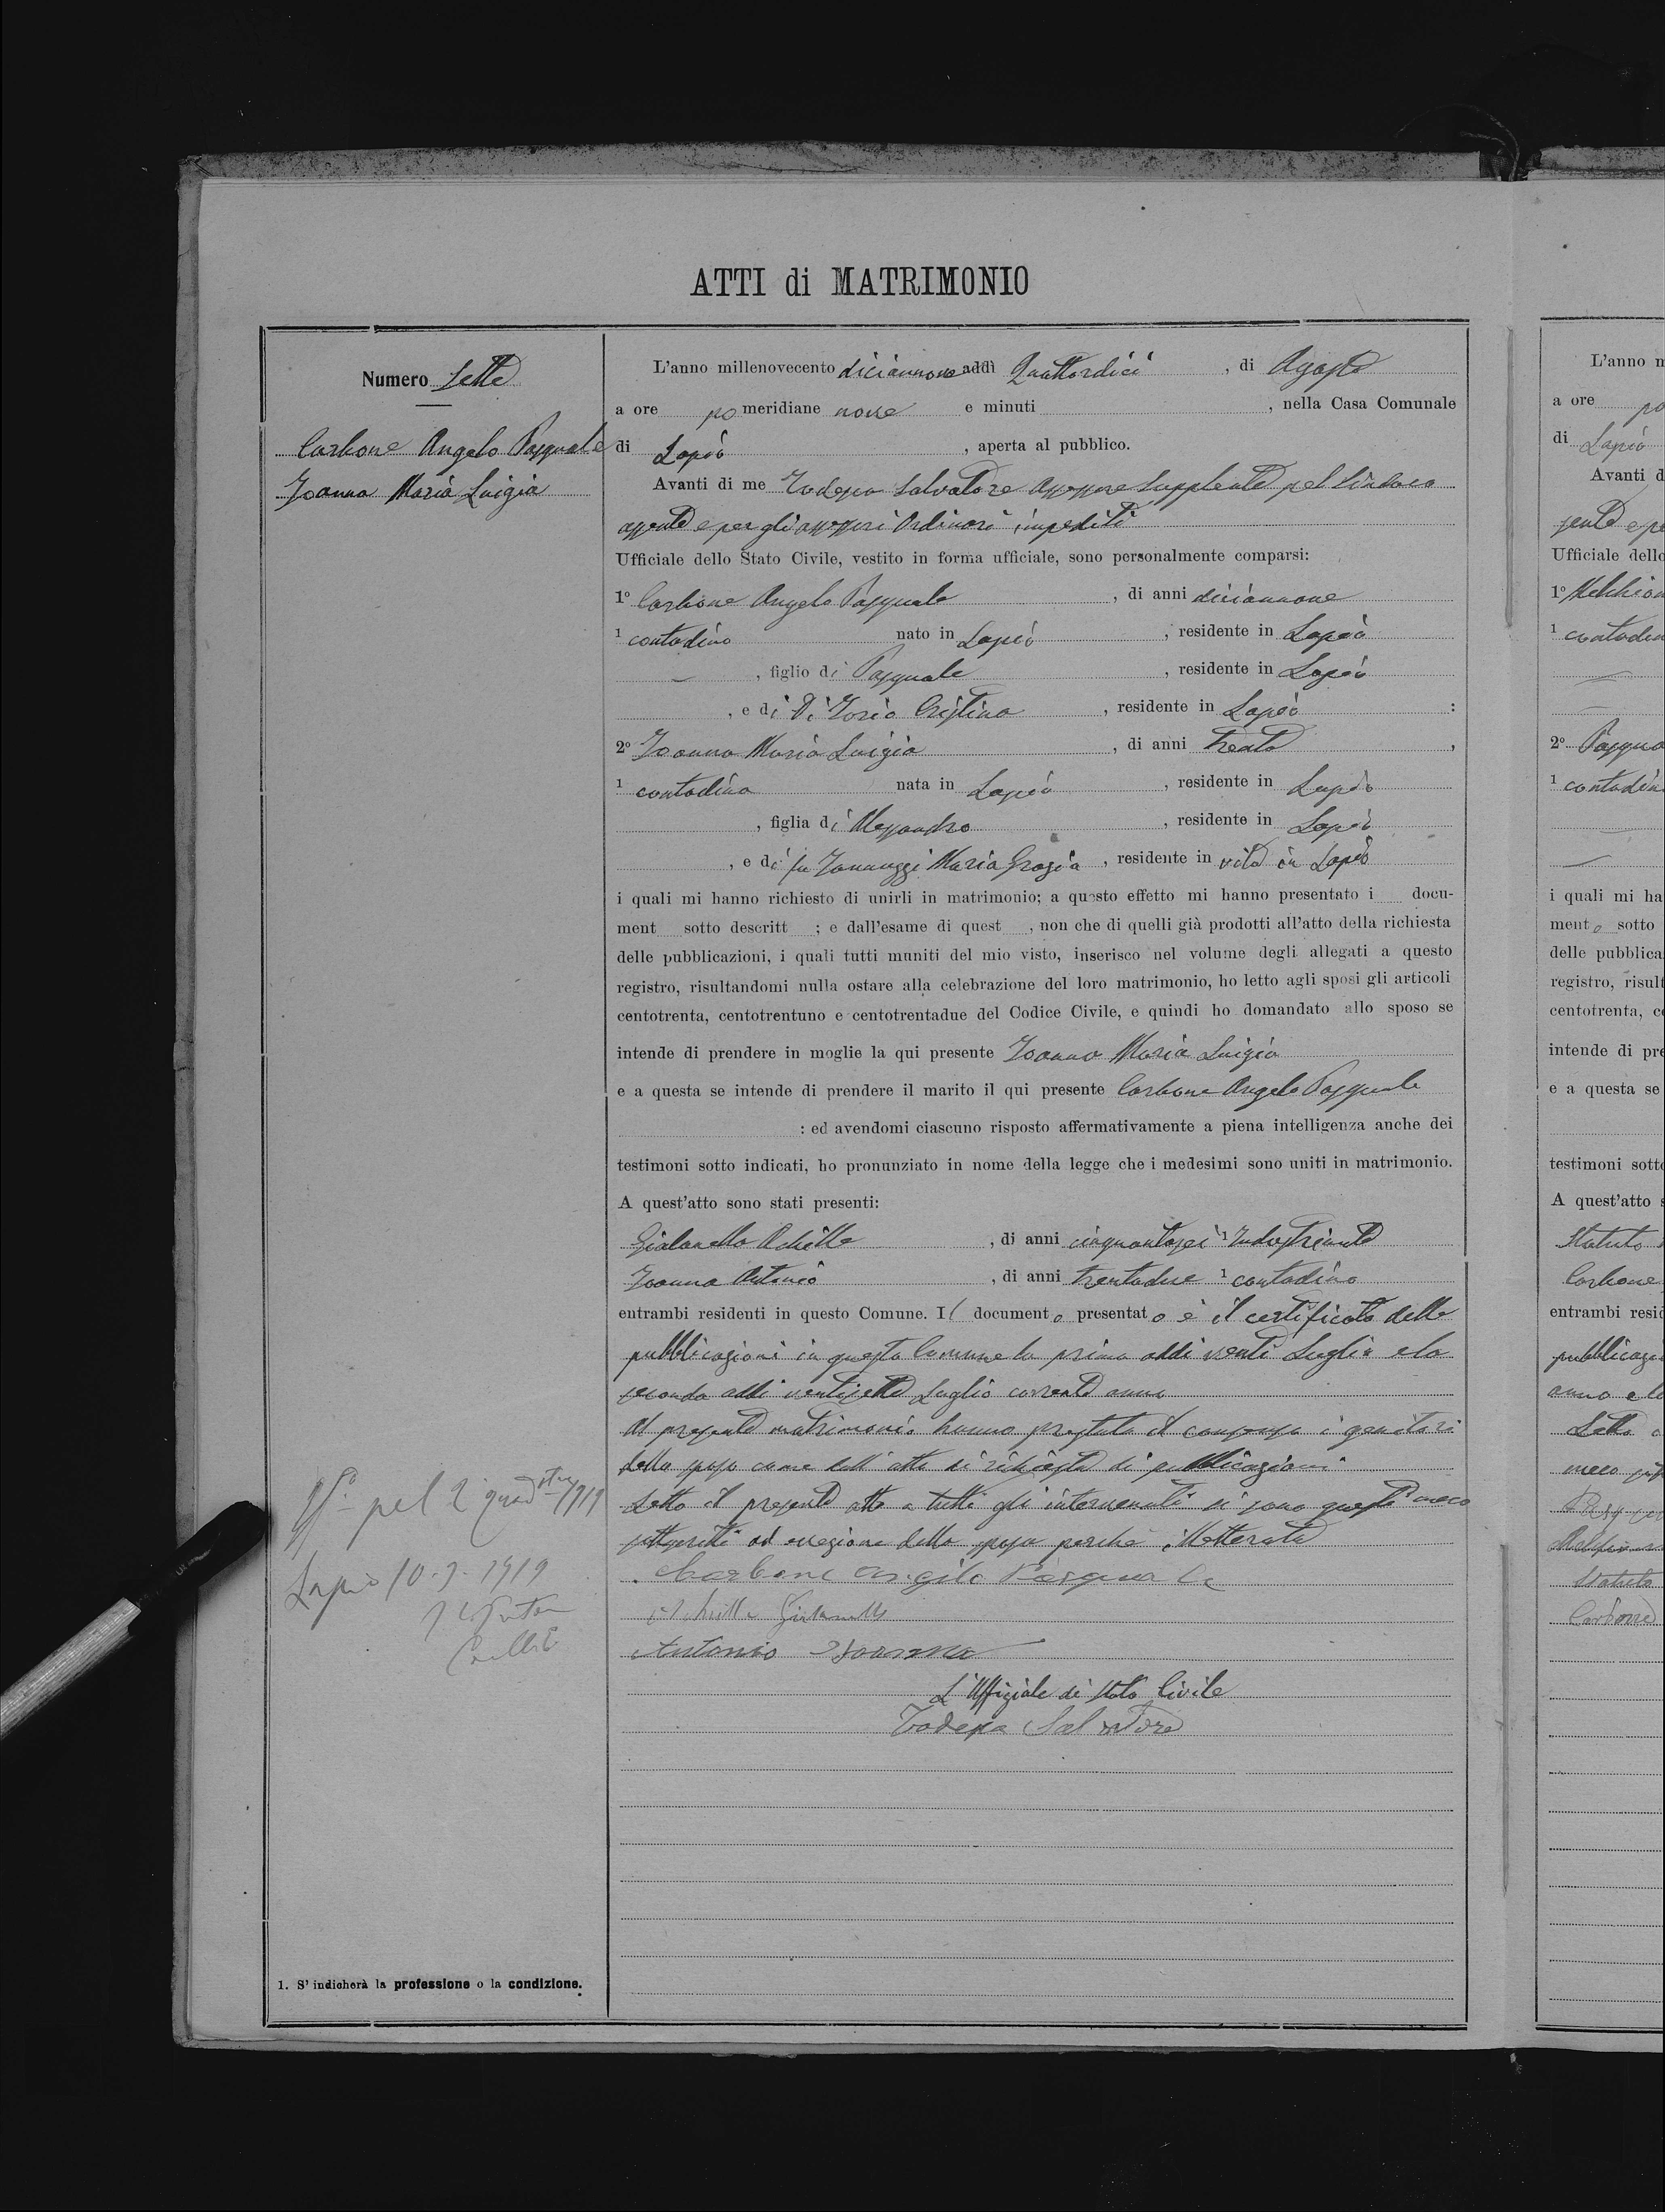 ATTI di MATRIMONIO
Numero Sette
Carbone Angelo Pasquale
Ioanna Maria Luigia
L'anno millenovecento diciannove addì Quattordici, di Agosto
a ore po meridiane nove e minuti , nella Casa Comunale
di Lapio, aperta al pubblico.
Avanti di me Todesca Salvatore Assessore Supplente pel Sindaco
assente e per gli assessori Ordinari impediti
Ufficiale dello Stato Civile, vestito in forma ufficiale, sono personalmente comparsi:
1° Carbone Angelo Pasquale, di anni diciannove
1 contadino nato in Lapio, residente in Lapio
, figlio di Pasquale, residente in Lapio
, e di Di Iorio Cristina, residente in Lapio :
2° Ioanna Maria Luigia, di anni trenta,
1 contadina nata in Lapio, residente in Lapio
, figlia di Alessandro, residente in Lapio
, e di fu Iannuzzi Maria Grazia, residente in vita in Lapio
i quali mi hanno richiesto di unirli in matrimonio; a questo effetto mi hanno presentato i docu-
ment sotto descritt ; e dall'esame di quest , non che di quelli già prodotti all'atto della richiesta
delle pubblicazioni, i quali tutti muniti del mio visto, inserisco nel volume degli allegati a questo
registro, risultandomi nulla ostare alla celebrazione del loro matrimonio, ho letto agli sposi gli articoli
centotrenta, centotrentuno e centotrentadue del Codice Civile, e quindi ho domandato allo sposo se
intende di prendere in moglie la qui presente Ioanna Maria Luigia
e a questa se intende di prendere il marito il qui presente Carbone Angelo Pasquale
: ed avendomi ciascuno risposto affermativamente a piena intelligenza anche dei
testimoni sotto indicati, ho pronunziato in nome della legge che i medesimi sono uniti in matrimonio.
A quest'atto sono stati presenti:
Gialanella Achille, di anni cinquantasei 1 Industriante
Ioanna Antonio, di anni trentadue 1 contadino
entrambi residenti in questo Comune. Il documento presentato è il certificato delle
pubblicazioni in questo Comune la prima addi venti Luglio e la
seconda addi ventisette Luglio corrente anno
Al presente matrimonio hanno prestato il consenso i genitori
dello sposo come dall'atto di richiesta di pubblicazioni
Letto il presente atto a tutti gli intervenuti si sono questi meco
sottoscritti ad eccezione della sposa perchè illetterata
Charbone Angilo Pasquale
Achille Gialanella
Antonio Ioanna
L'Uffiziale di Stato Civile
Todesca Salvatore
pel 2° quad 1919
Lapio 10.9.1919
1. S' indicherà la professione o la condizione.
L'anno m
a ore po
di Lapio
Avanti d
sente e pe
Ufficiale dello
1° Melchion
1 contadin
2° Pasqua
1 contadin
i quali mi ha
mento sotto
delle pubblica
registro, risult
centotrenta, ce
intende di pre
e a questa se
testimoni sotto
A quest'atto s
Statuto
Carbone
entrambi resid
pubblicazi
anno e la
Letto
meco
Statuto
Carbone